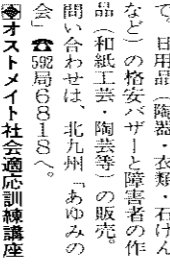 て、日用品（陶器・衣類・石けん
など）の格安バザーと障害者の作
品（和紙工芸・陶芸等）の販売。
問い合わせは、北九州「あゆみの
会」☎592局6818へ。
◈オストメイト社会適応訓練講座